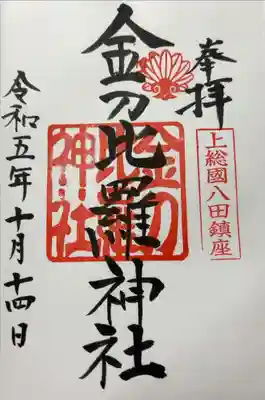 奉拝
上総國八田鎮座
金刀比羅神社
金刀比羅神社
令和五年十月十四日